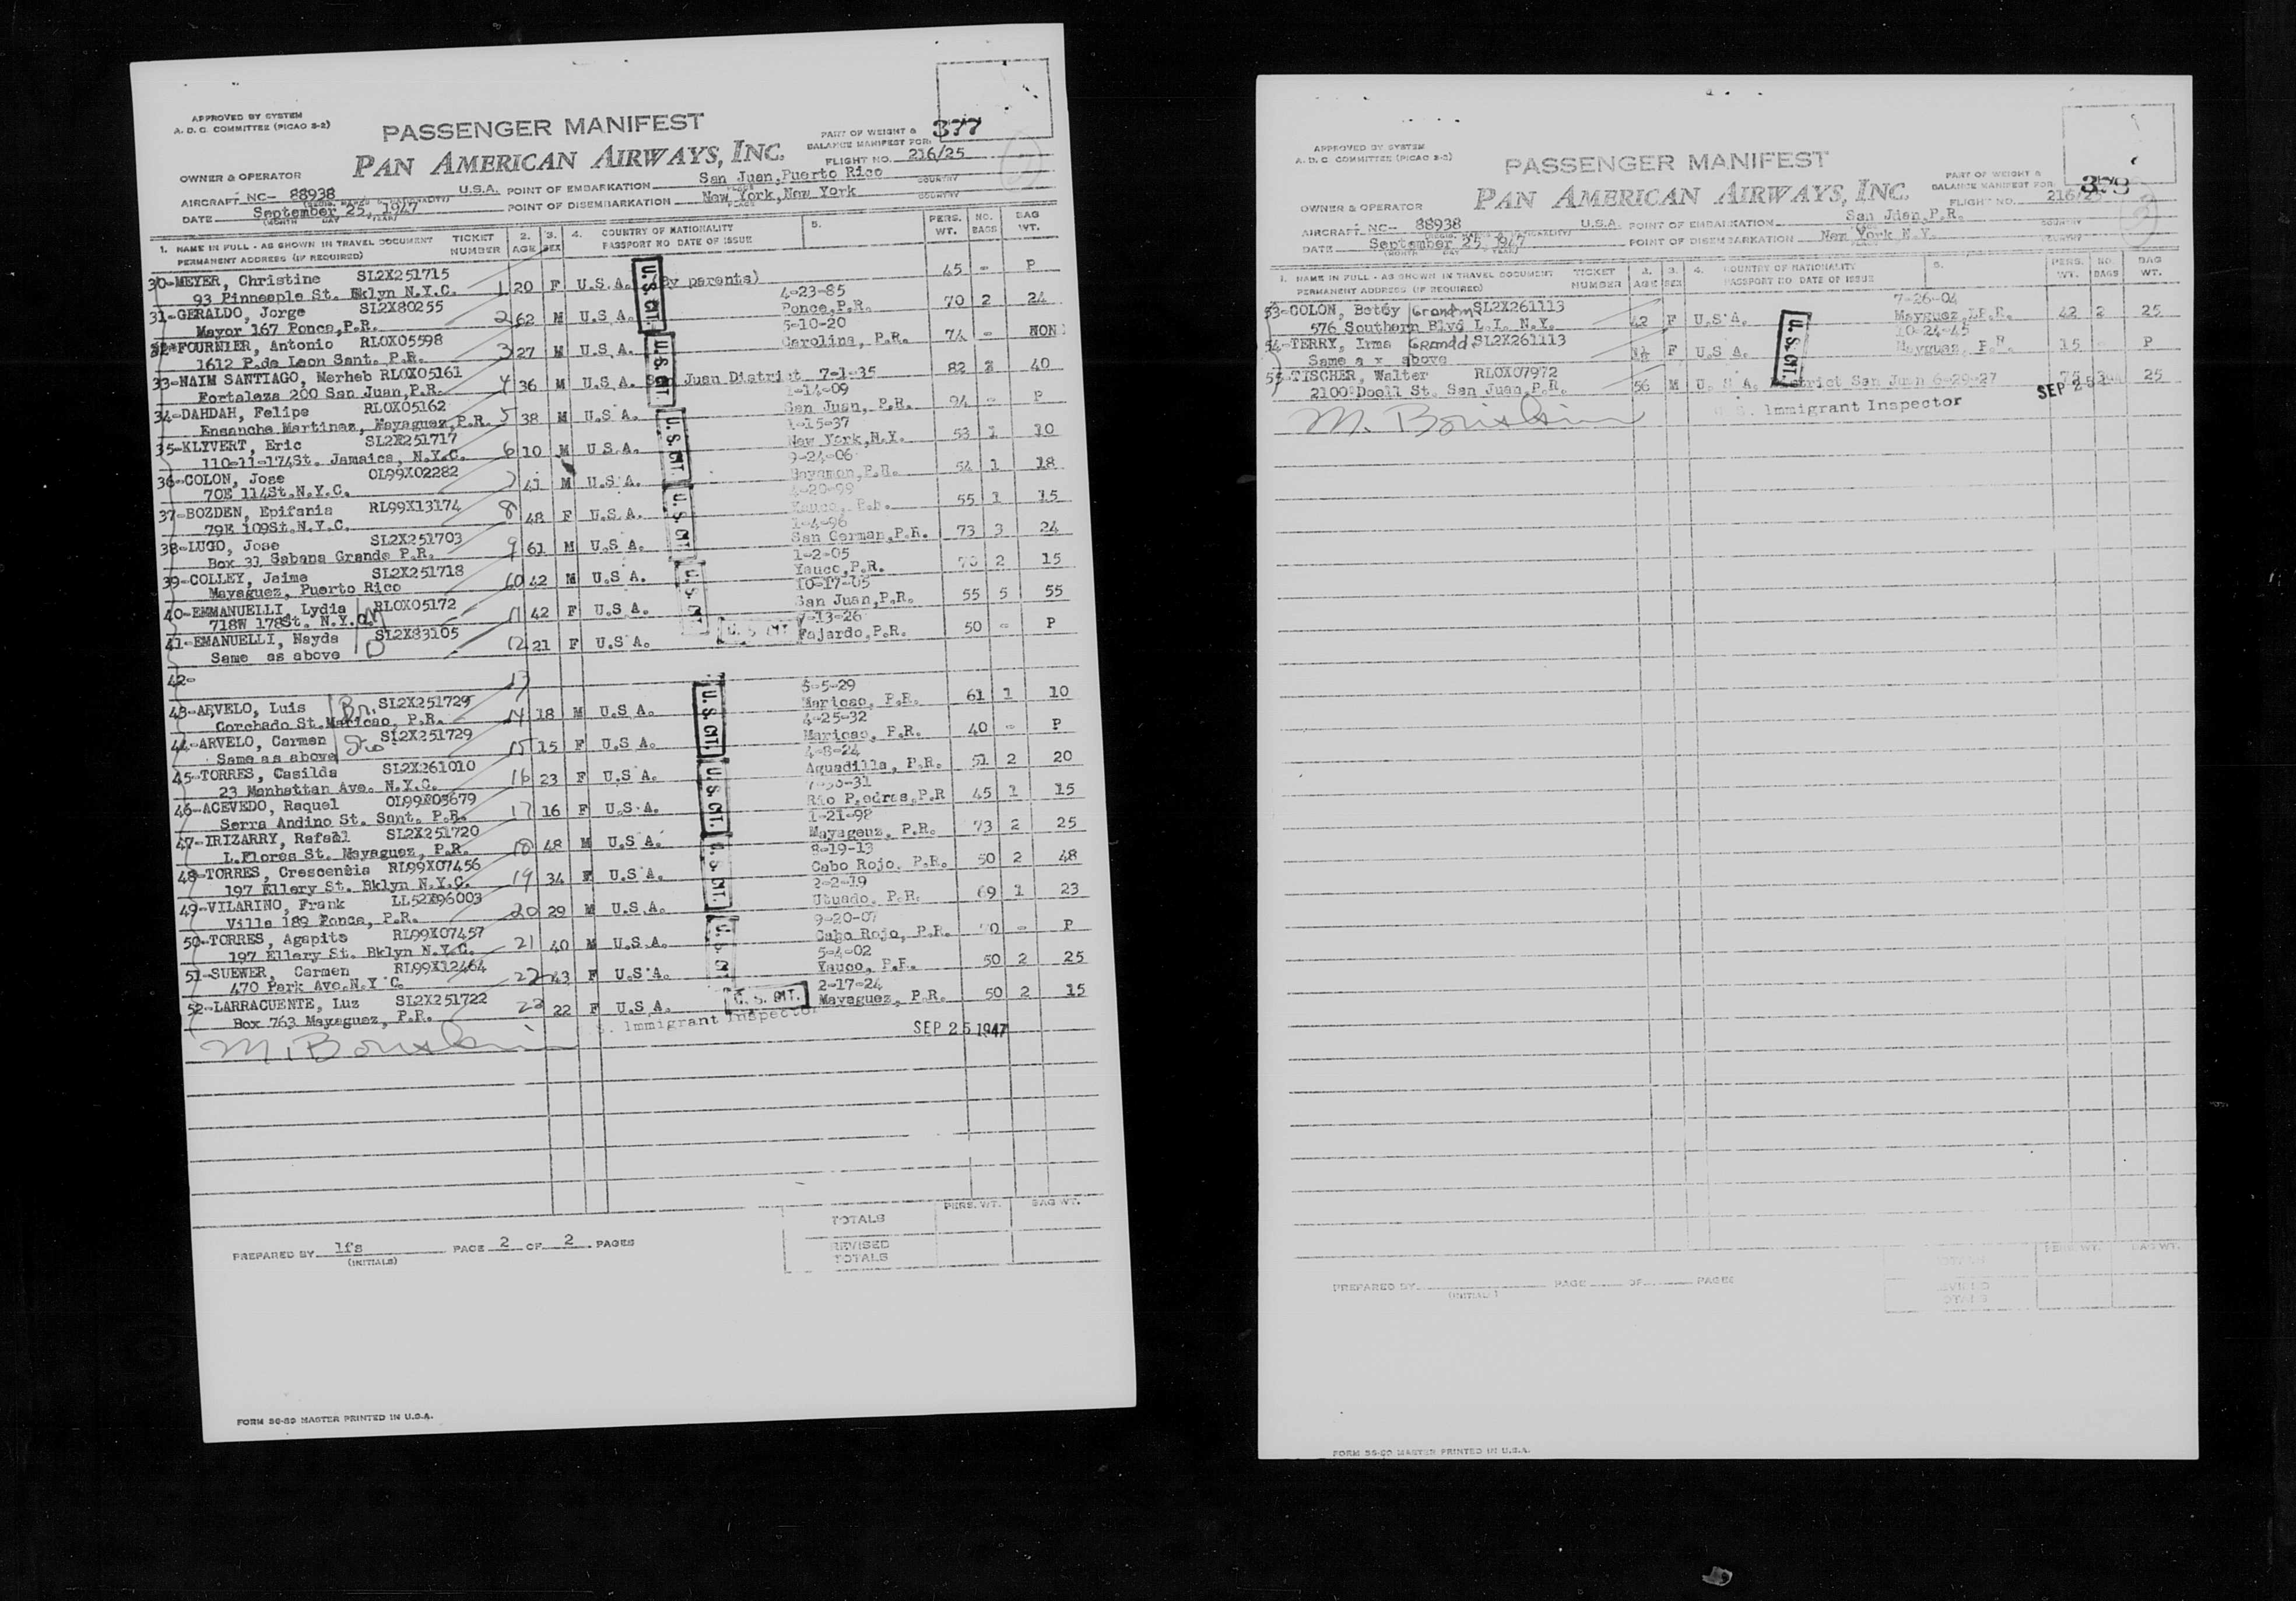 APPROVED BY SYSTEM
A. D. C. COMMITTEE (PICAO 3-2)
PASSENGER MANIFEST
PAN AMERICAN AIRWAYS, INC.
PART OF WEIGHT &
BALANCE MANIFEST FOR: 377
FLIGHT NO. 216/25
OWNER & OPERATOR
AIRCRAFT NC- 88938 U.S.A. POINT OF EMBARKATION San Juan, Puerto Rico COUNTRY
DATE September 25, 1947 POINT OF DISEMBARKATION New York, New York COUNTRY
(MONTH DAY YEAR) PLACE
1. NAME IN FULL - AS SHOWN IN TRAVEL DOCUMENT TICKET 2. 3. 4. COUNTRY OF NATIONALITY 5. PERS. NO. BAG
PERMANENT ADDRESS (IF REQUIRED) NUMBER AGE SEX PASSPORT NO DATE OF ISSUE WT. BAGS WT.
30-MEYER, Christine SL2X251715
93 Pinneaple St. Bklyn N.Y.C. 1 20 F U.S.A. (By parents) 45 - P
31-GERALDO, Jorge SL2X80255 4-23-85
Mayor 167 Ponce, P.R. 2 62 M U.S.A. Ponce, P.R. 70 2 24
32-FOURNIER, Antonio RLOX05598 5-10-20
1612 P.de Leon Sant. P.R. 3 27 M U.S.A. Carolina, P.R. 74 - NON
33-NAIM SANTIAGO, Merheb RLOX05161
Fortaleza 200 San Juan, P.R. 4 36 M U.S.A. San Juan District 7-1-35 82 3 40
34-DAHDAH, Felipe RLOX05162 1-14-09
Ensanche Martinez, Mayaguez, P.R. 5 38 M U.S.A. San Juan, P.R. 94 - P
35-KLYVERT, Eric SL2X251717 1-15-37
110-11-174St. Jamaica, N.Y.C. 6 10 M U.S.A. New York, N.Y. 53 1 10
36-COLON, Jose OL99X02282 9-24-06
70E 114St. N.Y.C. 7 41 M U.S.A. Bayamon, P.R. 54 1 18
37-BOZDEN, Epifania RL99X13174 4-20-99
79E 109St. N.Y.C. 8 48 F U.S.A. Yauco, P.R. 55 1 15
38-LUGO, Jose SL2X251703 1-4-96
Box 33 Sabana Grande P.R. 9 61 M U.S.A. San German, P.R. 73 3 24
39-COLLEY, Jaime SL2X251718 1-2-05
Mayaguez, Puerto Rico 10 42 M U.S.A. Yauco, P.R. 70 2 15
40-EMMANUELLI, Lydia RLOX05172 10-17-05
718W 178St. N.Y. 11 42 F U.S.A. San Juan, P.R. 55 5 55
41-EMANUELLI, Nayda D SL2X83105 7-13-26
Same as above 12 21 F U.S.A. Fajardo, P.R. 50 - P
42- 13
43-ARVELO, Luis Br. SL2X251729 5-5-29
Corchado St. Maricao, P.R. 14 18 M U.S.A. Maricao, P.R. 61 1 10
44-ARVELO, Carmen Sis SL2X251729 4-25-32
Same as above 15 15 F U.S.A. Maricao, P.R. 40 - P
45-TORRES, Casilda SL2X261010 4-8-24
23 Manhattan Ave. N.Y.C. 16 23 F U.S.A. Aguadilla, P.R. 51 2 20
46-ACEVEDO, Raquel OL99X05679 7-30-31
Serra Andino St. Sant. P.R. 17 16 F U.S.A. Rio Piedras, P.R 45 1 15
47-IRIZARRY, Rafael SL2X251720 1-21-98
L.Flores St. Mayaguez, P.R. 18 48 M U.S.A. Mayageuz, P.R. 73 2 25
48-TORRES, Crescencia RL99X07456 8-19-13
197 Ellery St. Bklyn N.Y.C. 19 34 F U.S.A. Cabo Rojo, P.R. 50 2 48
49-VILARINO, Frank LL52X96003 2-2-19
Villa 189 Ponce, P.R. 20 29 M U.S.A. Utuado, P.R. 69 1 23
50-TORRES, Agapito RL99X07457 9-20-07
197 Ellery St. Bklyn N.Y.C. 21 40 M U.S.A. Cabo Rojo, P.R. 70 - P
51-SUEWER, Carmen RL99X12464 5-4-02
470 Park Ave. N.Y C. 22 43 F U.S.A. Yauco, P.R. 50 2 25
52-LARRACUENTE, Luz SL2X251722 2-17-24
Box 763 Mayaguez, P.R. 23 22 F U.S.A. Mayaguez, P.R. 50 2 15
U.S. CIT.
U.S. CIT
U.S. CIT.
U.S. CIT
U.S. CIT
U.S. CIT.
U.S. CIT.
U.S. CIT.
U.S. CIT.
U.S. CIT
U.S. CIT.
S. Immigrant Inspector
SEP 25 1947
PERS. WT. BAG WT.
TOTALS
REVISED
TOTALS
PREPARED BY lfs PAGE 2 OF 2 PAGES
(INITIALS)
FORM 36-89 MASTER PRINTED IN U.S.A.
APPROVED BY SYSTEM
A. D. C. COMMITTEE (PICAO 3-2)
PASSENGER MANIFEST
PAN AMERICAN AIRWAYS, INC.
PART OF WEIGHT &
BALANCE MANIFEST FOR:
FLIGHT NO. 216/25
OWNER & OPERATOR
AIRCRAFT NC- 88938 U.S.A. POINT OF EMBARKATION San Juan, P.R. COUNTRY
DATE September 25, 1947 POINT OF DISEMBARKATION New York N.Y. COUNTRY
(MONTH DAY YEAR)
1. NAME IN FULL - AS SHOWN IN TRAVEL DOCUMENT TICKET 2. 3. 4. COUNTRY OF NATIONALITY 5. PERS. NO. BAG
PERMANENT ADDRESS (IF REQUIRED) NUMBER AGE SEX PASSPORT NO DATE OF ISSUE WT. BAGS WT.
53-COLON, Betty Grandm SL2X261113 7-26-04
576 Southern Blvd L.I. N.Y. 42 F U.S.A. Mayguez, P.R. 42 2 25
54-TERRY, Irma Grandd. SL2X261113 10-24-45
Same a x above F U.S.A. Mayguez, P.R. 15 - P
55-TISCHER, Walter RLOX07972
2100 Dooll St. San Juan, P.R. 56 M U.S.A. District San Juan 6-29-27 75 25
U.S. CIT.
S. Immigrant Inspector
SEP 25
PERS. WT. BAG WT.
PREPARED BY PAGE OF PAGES
(INITIALS)
FORM 36-89 MASTER PRINTED IN U.S.A.